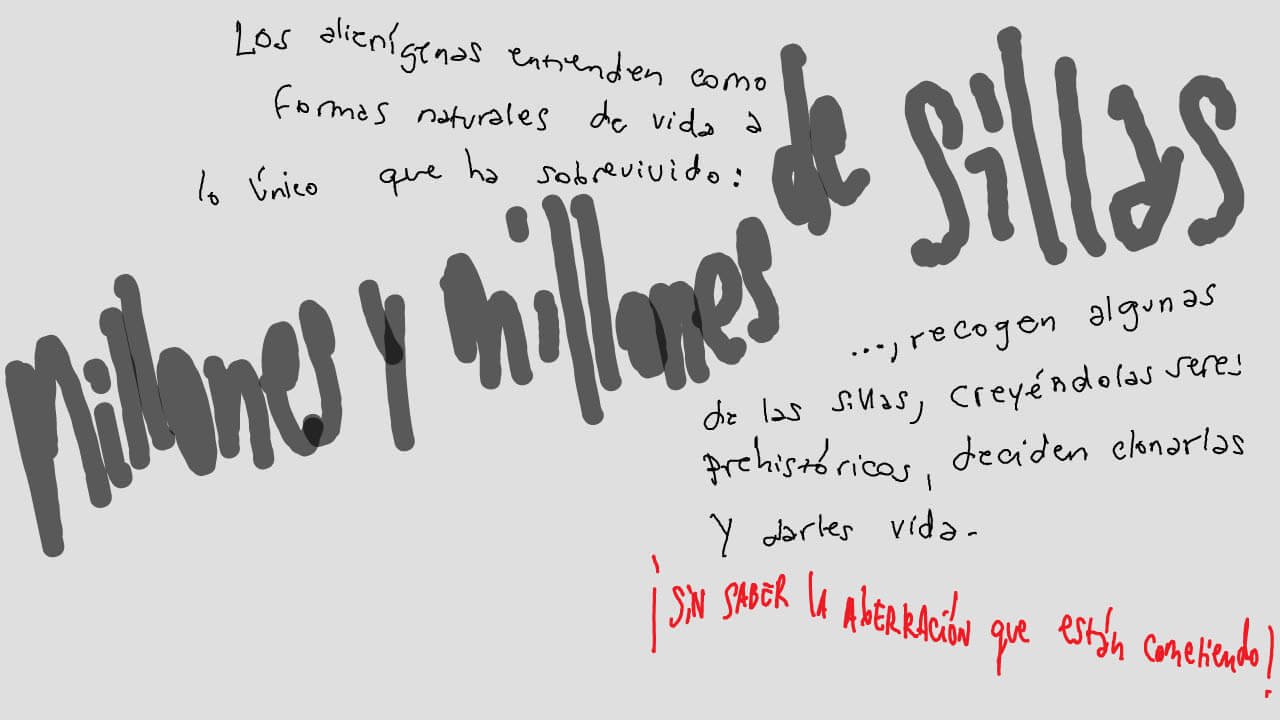 Los alienígenas entienden como
formas naturales de vida a
lo único que ha sobrevivido:
Millones y millones de sillas
..., recogen algunas
de las sillas, creyéndolas seres
prehistóricos, deciden clonarlas
y darles vida.
¡SIN SABER LA ABERRACIÓN que están cometiendo!